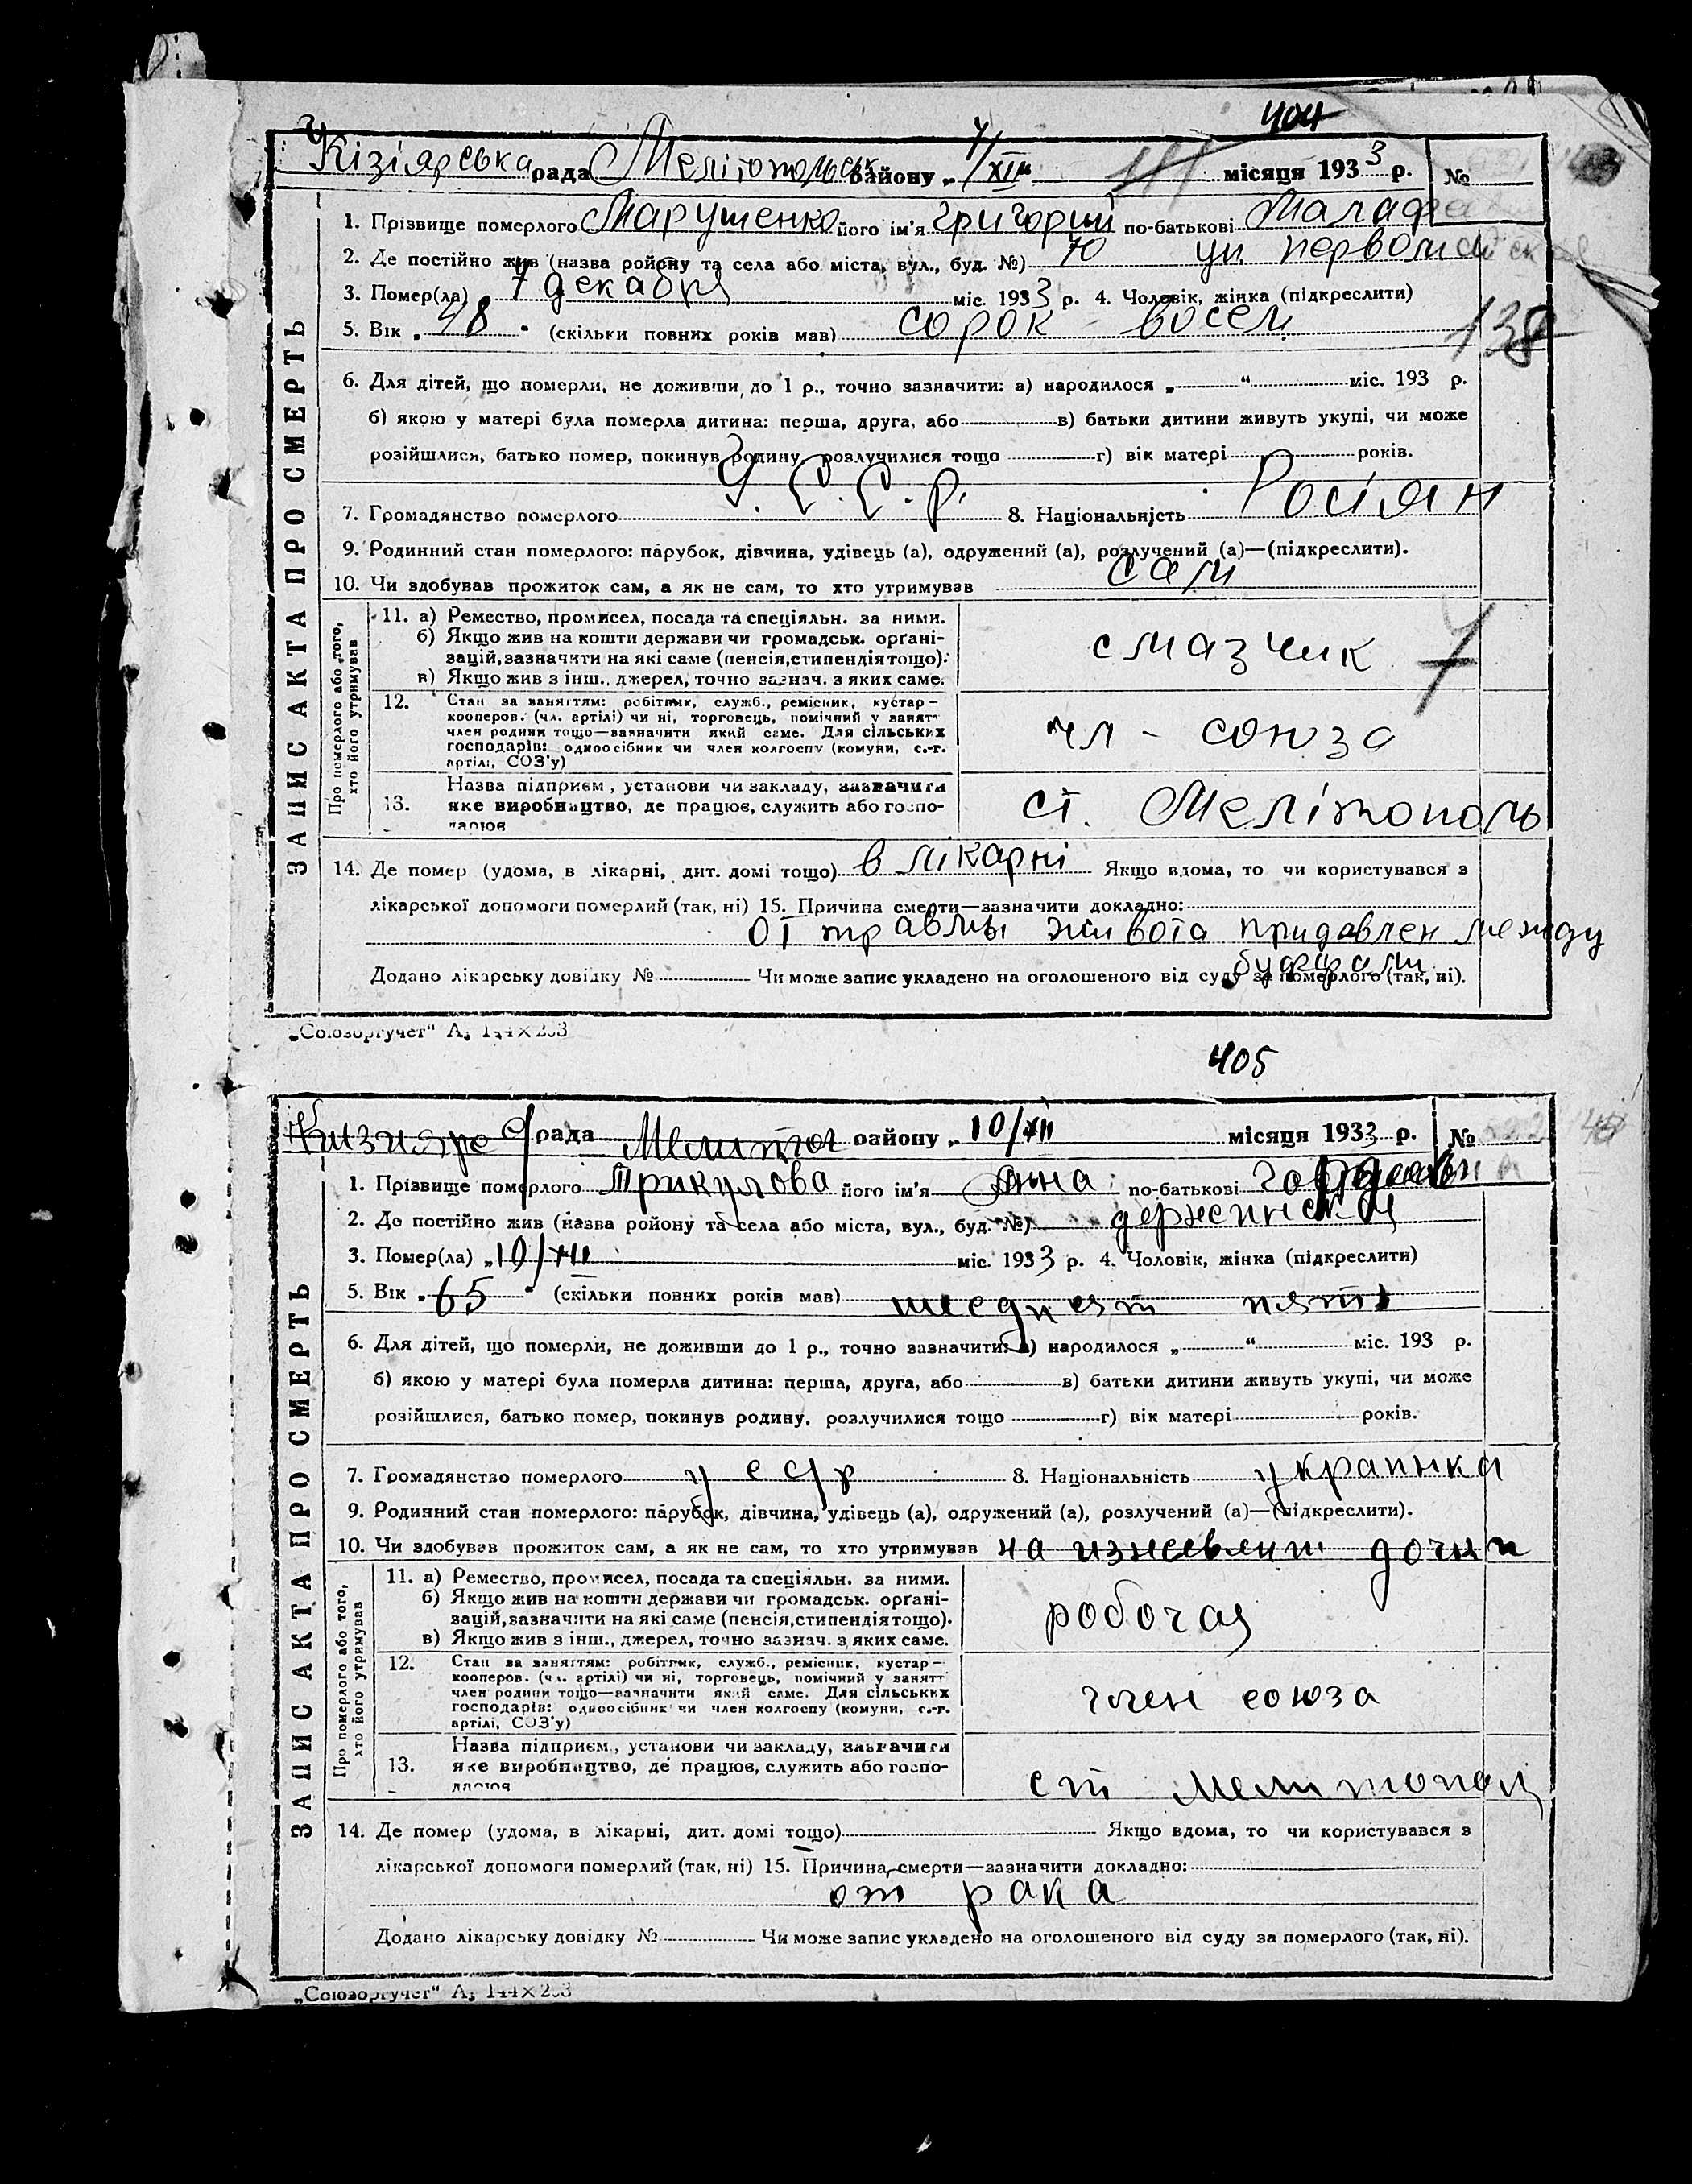 404
Кізіярська рада Мелітопольськ району „ 7/XII" місяця 1933 р. №
1. Прізвище померлого Марушенко його ім'я Григорий по-батькові Малафе
2. Де постійно жив (назва ройону та села або міста, вул., буд. №) 70 ул первомайская
3. Помер(ла) „ 7 декабря міс. 1933 р. 4. Чоловік, жінка (підкреслити)
5. Вік „ 48 " (скільки повних років мав) сорок - восем
138
6. Для дітей, що померли, не доживши до 1 р., точно зазначити: а) народилося „ “ міс. 193 р.
б) якою у матері була померла дитина: перша, друга, або в) батьки дитини живуть укупі, чи може
розійшлися, батько помер, покинув родину, розлучилися тощо г) вік матері років.
7. Громадянство померлого У.С.С.Р. 8. Національність Росіян
9. Родинний стан померлого: парубок, дівчина, удівець (а), одружений (а), розлучений (а)—(підкреслити).
10. Чи здобував прожиток сам, а як не сам, то хто утримував сам
ЗАПИС АКТА ПРО СМЕРТЬ
Про померлого або того, хто його утримував
11. а) Ремество, промисел, посада та спеціяльн. за ними.
б) Якщо жив на кошти держави чи громадськ. орґані-
зацій, зазначити на які саме (пенсія, стипендія тощо).
в) Якщо жив з інш., джерел, точно зазнач. з яких саме.
смазчик 7
12. Стан за заняттям: робітник, служб., ремісник, кустар-
кооперов. (чл. артілі) чи ні, торговець, помічний у занятт
член родини тощо—зазначити який саме. Для сільських
господарів: одноосібник чи член колгоспу (комуни, с.-г.
артілі, СОЗ'у)
чл - союза
13. Назва підприєм., установи чи закладу, зазначити
яке виробництво, де працює, служить або госпо-
дарює
ст. Мелітополь
14. Де помер (удома, в лікарні, дит. домі тощо) в лікарні Якщо вдома, то чи користувався з
лікарської допомоги померлий (так, ні) 15. Причина смерти—зазначити докладно:
от травмы живота придавлен между
буферами
Додано лікарську довідку № Чи може запис укладено на оголошеного від суду за померлого (так, ні).
„Союзоргучет“ А₅ 144×203
405
Кизияре рада Мелитоп району „ 10/XII місяця 1933 р. №
1. Прізвище померлого Прикулова його ім'я Анна по-батькові
2. Де постійно жив (назва ройону та села або міста, вул., буд. №) держинской
3. Помер(ла) „ 10/XII міс. 1933 р. 4. Чоловік, жінка (підкреслити)
5. Вік „ 65 " (скільки повних років мав) шесдцят пять
6. Для дітей, що померли, не доживши до 1 р., точно зазначити: а) народилося „ “ міс. 193 р.
б) якою у матері була померла дитина: перша, друга, або в) батьки дитини живуть укупі, чи може
розійшлися, батько помер, покинув родину, розлучилися тощо г) вік матері років.
7. Громадянство померлого у с с р 8. Національність украинка
9. Родинний стан померлого: парубок, дівчина, удівець (а), одружений (а), розлучений (а)—(підкреслити).
10. Чи здобував прожиток сам, а як не сам, то хто утримував на изжевлении дочки
ЗАПИС АКТА ПРО СМЕРТЬ
Про померлого або того, хто його утримував
11. а) Ремество, промисел, посада та спеціяльн. за ними.
б) Якщо жив на кошти держави чи громадськ. орґані-
зацій, зазначити на які саме (пенсія, стипендія тощо).
в) Якщо жив з інш., джерел, точно зазнач. з яких саме.
робочая
12. Стан за заняттям: робітник, служб., ремісник, кустар-
кооперов. (чл. артілі) чи ні, торговець, помічний у занятт
член родини тощо—зазначити який саме. Для сільських
господарів: одноосібник чи член колгоспу (комуни, с.-г.
артілі, СОЗ'у)
член союза
13. Назва підприєм., установи чи закладу, зазначити
яке виробництво, де працює, служить або госпо-
дарює
ст мелитопол
14. Де помер (удома, в лікарні, дит. домі тощо) Якщо вдома, то чи користувався з
лікарської допомоги померлий (так, ні) 15. Причина смерти—зазначити докладно:
от рака
Додано лікарську довідку № Чи може запис укладено на оголошеного від суду за померлого (так, ні).
„Союзоргучет“ А₅ 144×203